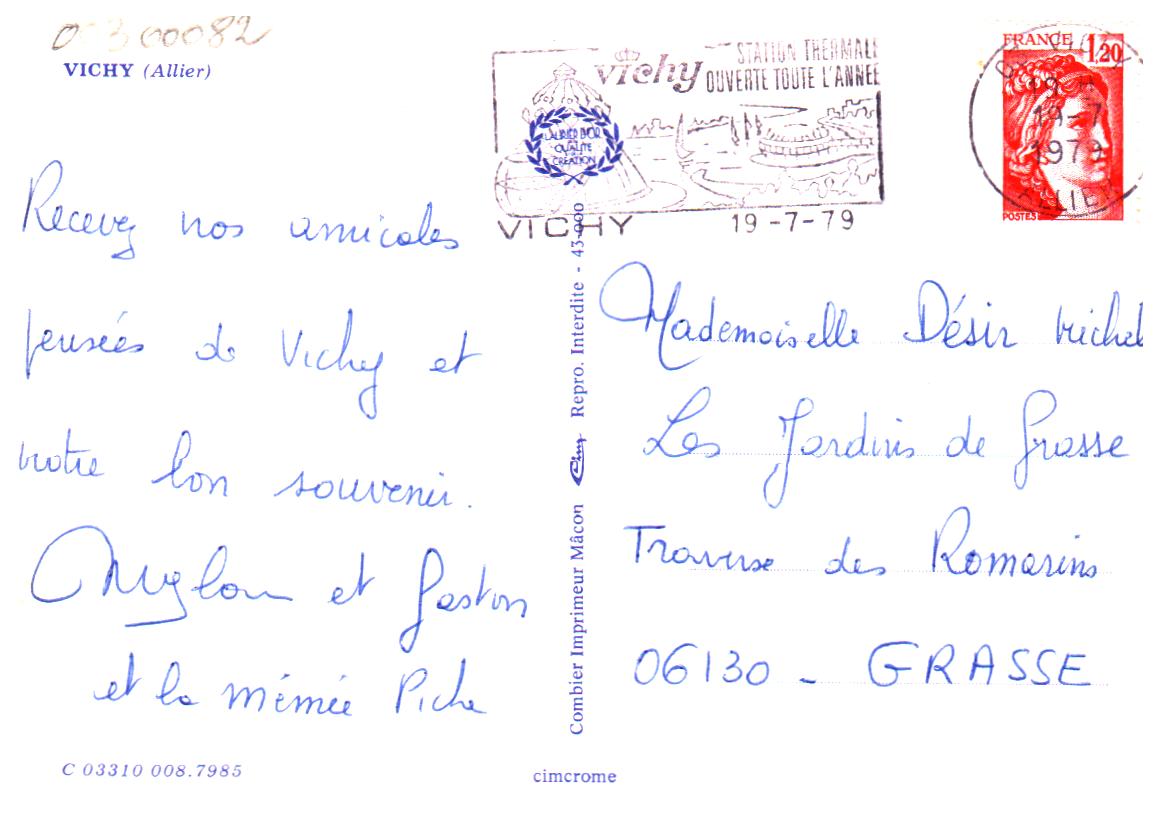 03300082
VICHY (Allier)
vichy
STATION THERMALE
OUVERTE TOUTE L'ANNÉE
LAURIER D'OR
QUALITÉ
CRÉATION
VICHY 19-7-79
FRANCE 1,20
19-7
1979
ALLIER
POSTES
Recevez nos amicales
pensées de Vichy et
notre bon souvenir.
et Gaston
et la mémée Piche
Mademoiselle Désir Michel
Les Jardins de Grasse
Traverse des Romarins
06130 - GRASSE
Combier Imprimeur Mâcon Cim Repro. Interdite - 43-000
C 03310 008.7985
cimcrome